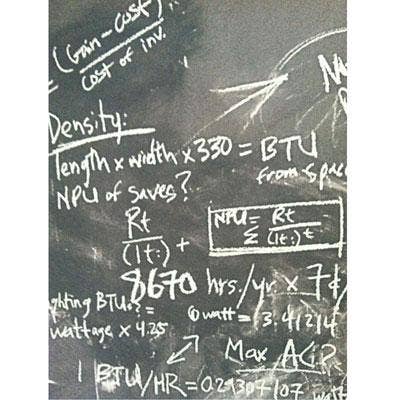 = (Gain - Cost)
Cost of inv.
Density:
length x width x 330 = BTU
from spac
NPU of saves?
Rt
(1t:)t
NPU = Rt
Σ (1t:)t
8670 hrs./yr. x 7¢/
ghting BTUs? =
wattage x 4.25
① watt = 3.41214
Max AGR
1 BTU/HR = 0.29307107 watt